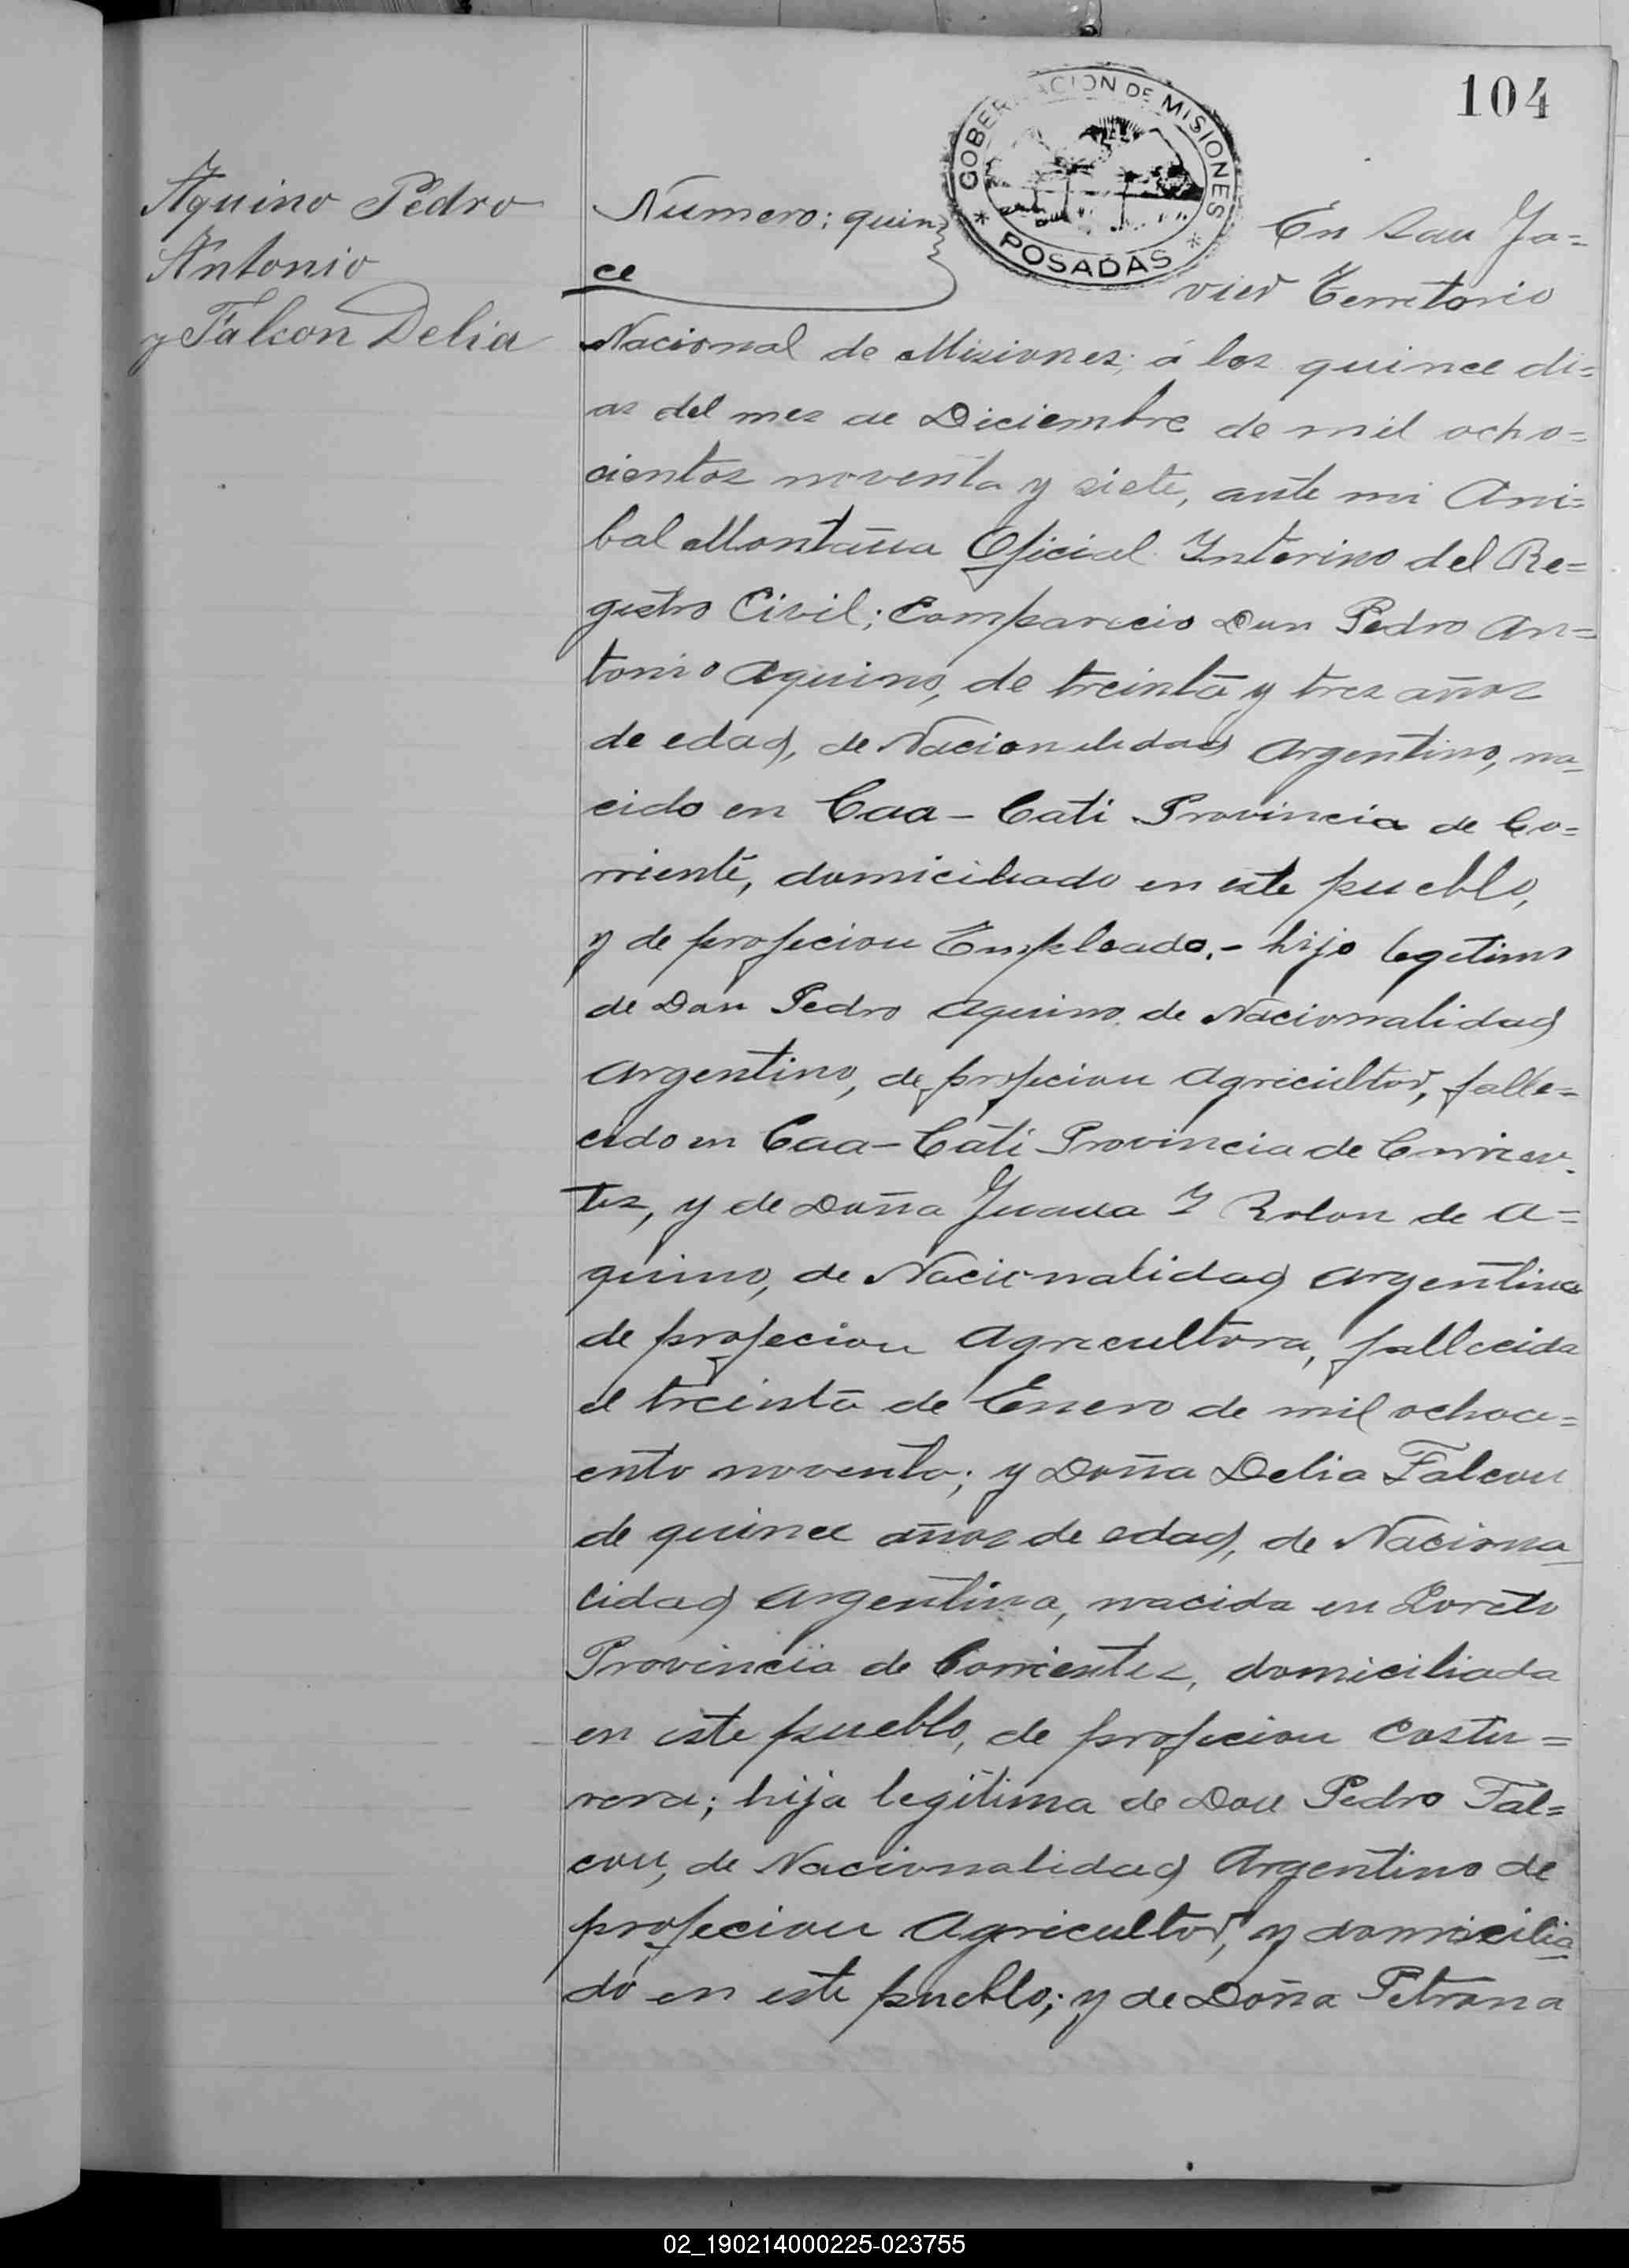 104
GOBERNACION DE MISIONES
* POSADAS *
Aquino Pedro
Antonio
y Falcon Delia
Número: quin
ce
En San Ja=
vier Territorio
Nacional de Misiones; á los quince di=
as del mes de Diciembre de mil ocho=
cientos noventa y siete, ante mi Ani=
bal Montaña Oficial Interino del Re=
gistro Civil; Comparecio Don Pedro An=
tonio Aquino, de treinta y tres años
de edad, de Nacionalidad Argentino, na=
cido en Caa-Cati Provincia de Co=
rriente, domiciliado en este pueblo,
y de profecion Empleado.- hijo legetimo
de Don Pedro Aquino de Nacionalidad
Argentino, de profecion Agricultor, falle=
cido en Caa-Cati Provincia de Corrien-
tes, y de Doña Juana I Rolon de A=
quino, de Nacionalidad Argentina
de profecion Agricultora, fallecida
el treinta de Enero de mil ochoci=
ento noventa; y Doña Delia Falcon
de quince años de edad, de Naciona
lidad Argentina, nacida en Loreto
Provincia de Corrientes, domiciliada
en este pueblo, de profecion Costu=
rera; hija legitima de Don Pedro Fal=
con, de Nacionalidad Argentino de
profecion Agricultor, y domicilia
do en este pueblo; y de Doña Petrona
02_190214000225-023755